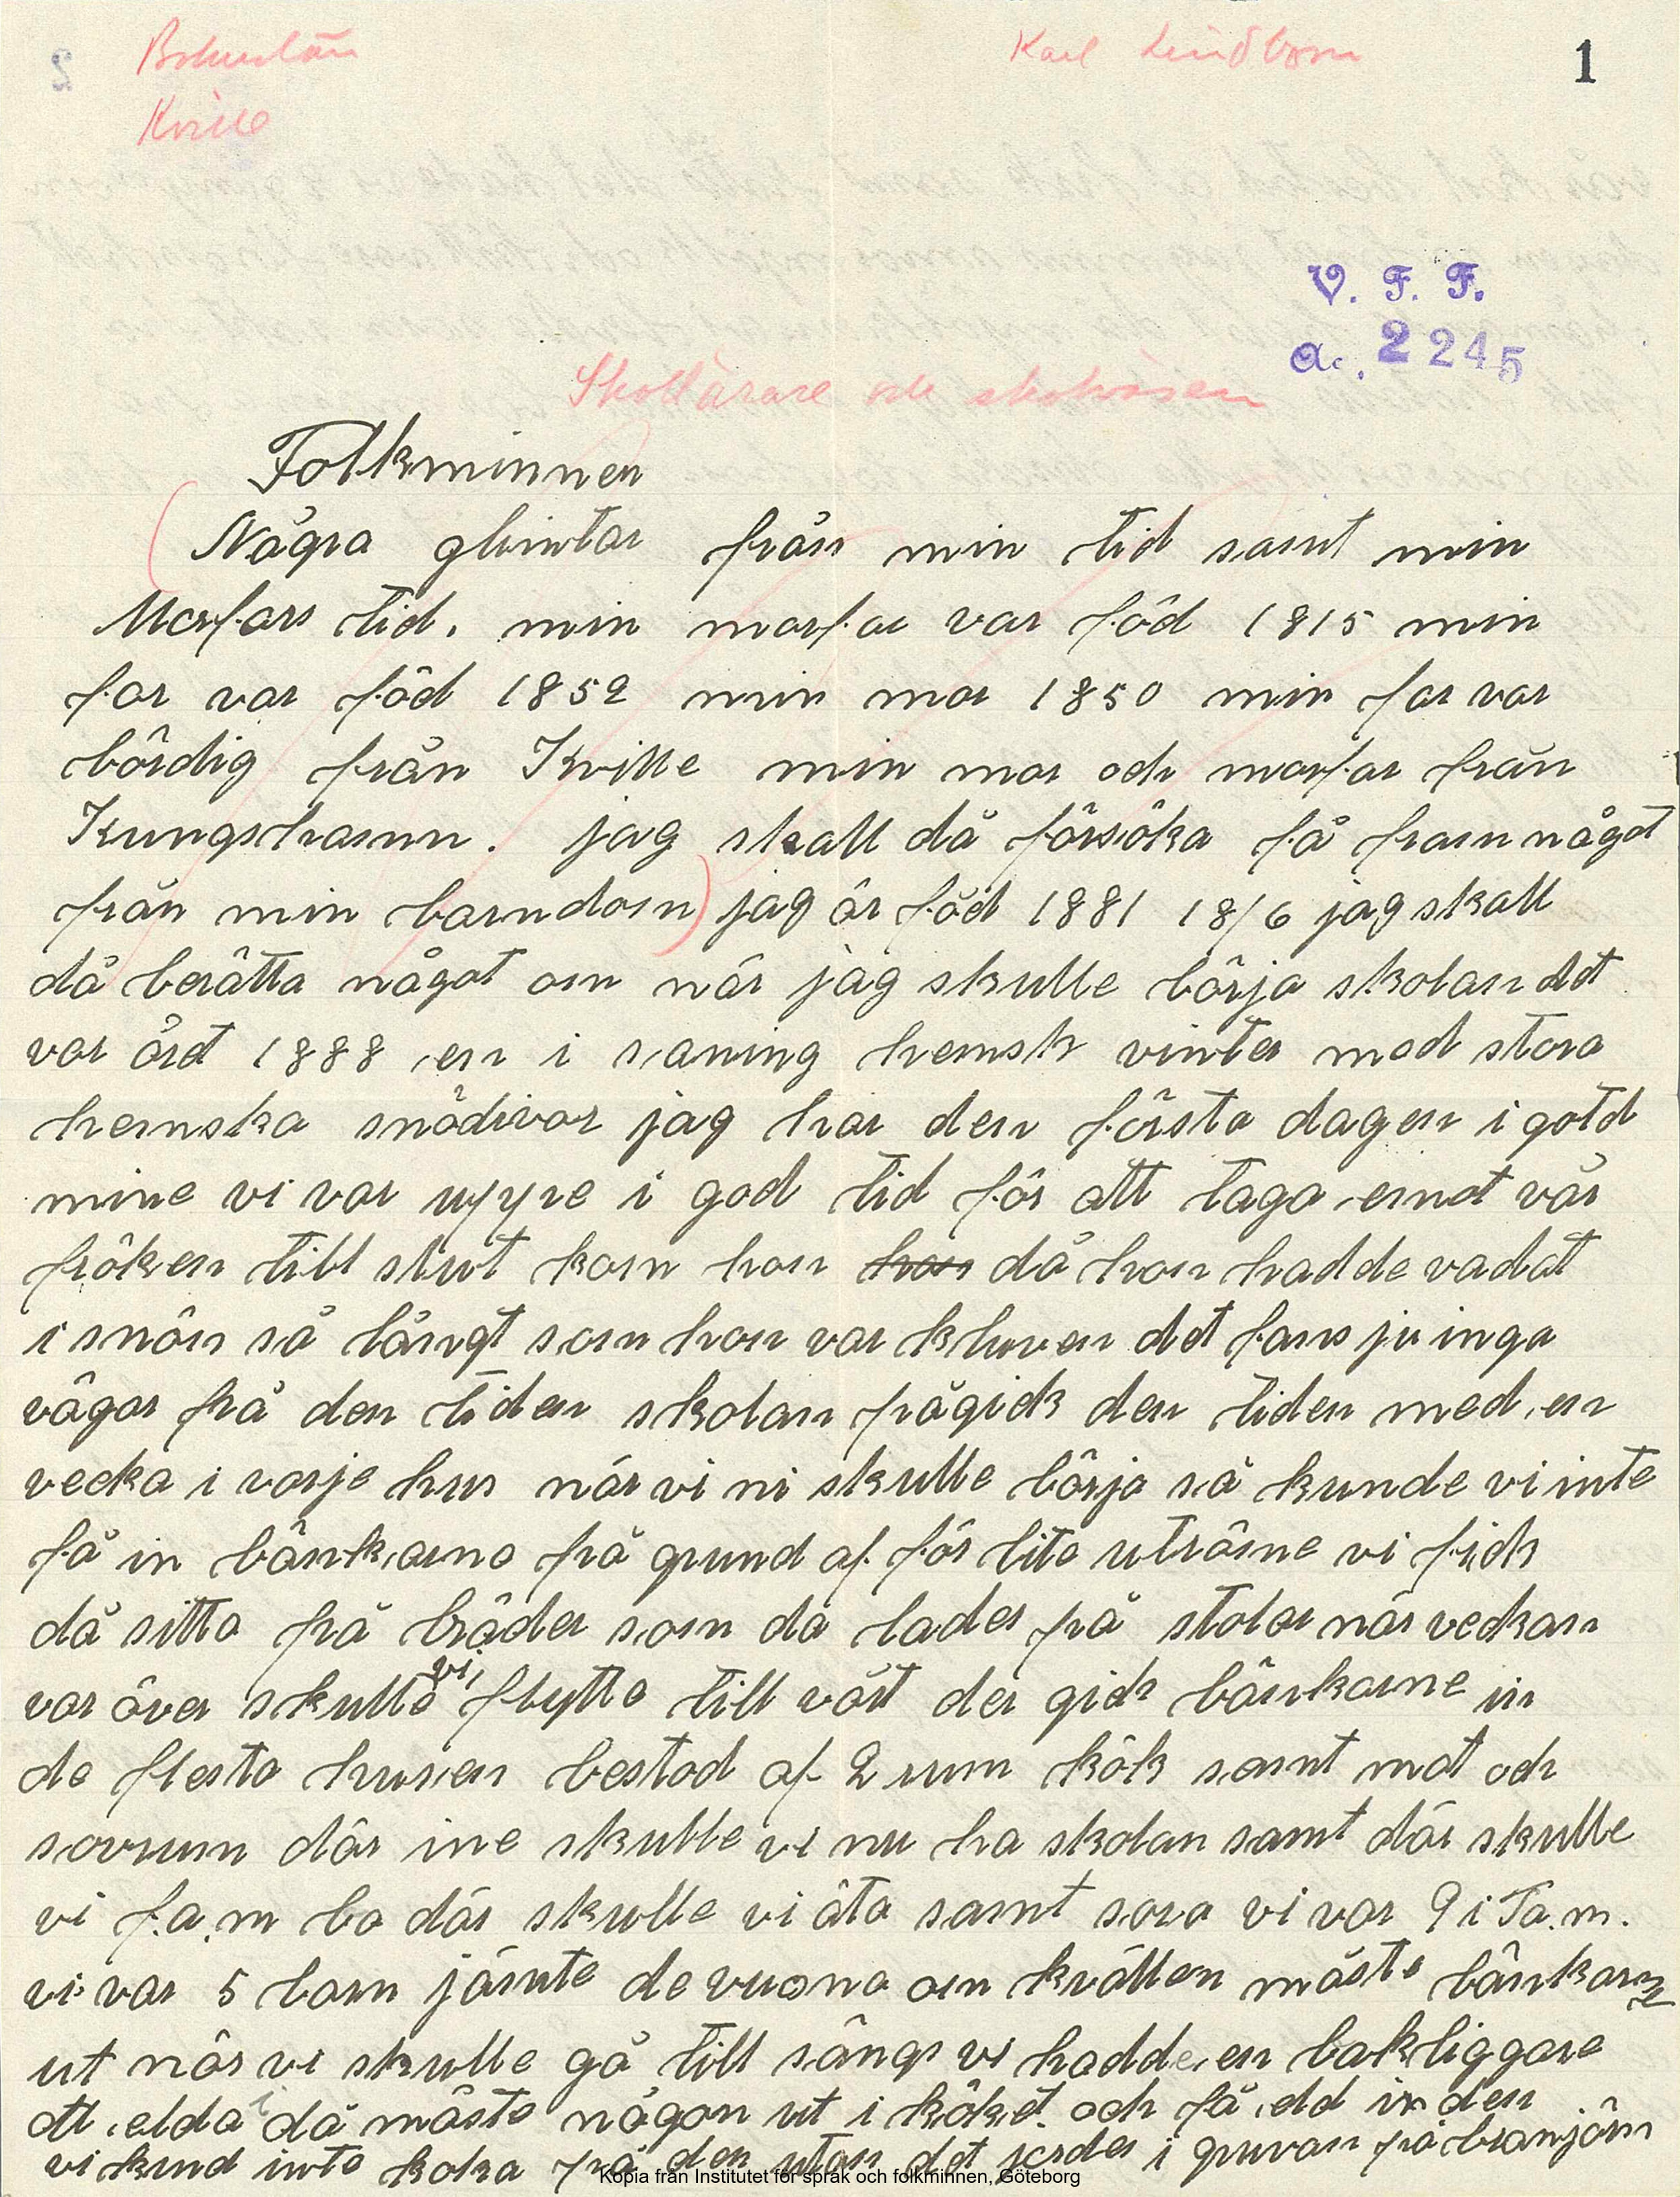 Bohuslän
Kville
Karl Lindblom
1
V. F. F.
a. 2245
Skollärare och skolväsen
Folkminnen
Några glimtar från min tid samt min
Morfars tid. min morfar var född 1815 min
far var född 1852 min mor 1850 min far var
bördig från Kville min mor och morfar från
Kungshamn. jag skall då försöka få fram något
från min barndom) jag är född 1881 18/6 jag skall
då berätta något om när jag skulle börja skolan det
var året 1888 en i saning hemsk vinter med stora
hemska snödivor jag har den första dagen i gotd
mine vi var uppe i god tid för att taga emot vår
fröken till slut kom hon hon då hon hadde vadat
i snön så långt som hon var kluven det fans ju inga
vägar på den tiden skolan pågick den tiden med en
vecka i varje hus när vi ni skulle börja så kunde vi inte
få in bänkarna på grund af för lite uträme vi fick
då sitta på bräder som då lades på stolar när veckan
var över skulle vi flytta till vårt der gick bänkarne in
de flesta husen bestod af 2 rum kök samt mat och
sovrum där ine skulle vi nu ha skolan samt där skulle
vi fa.m bo där skulle vi äta samt sova vi var 9 i Fa.m.
vi var 5 barn jämte de vuxna om kvällen måste bänkarne
ut när vi skulle gå till sängs vi hadde en bakliggare
att elda i då måste någon ut i köket och få eld in den
vi kund inte koka på den utan det jordes i gruvan på branjärn
Kopia från Institutet för språk och folkminnen, Göteborg